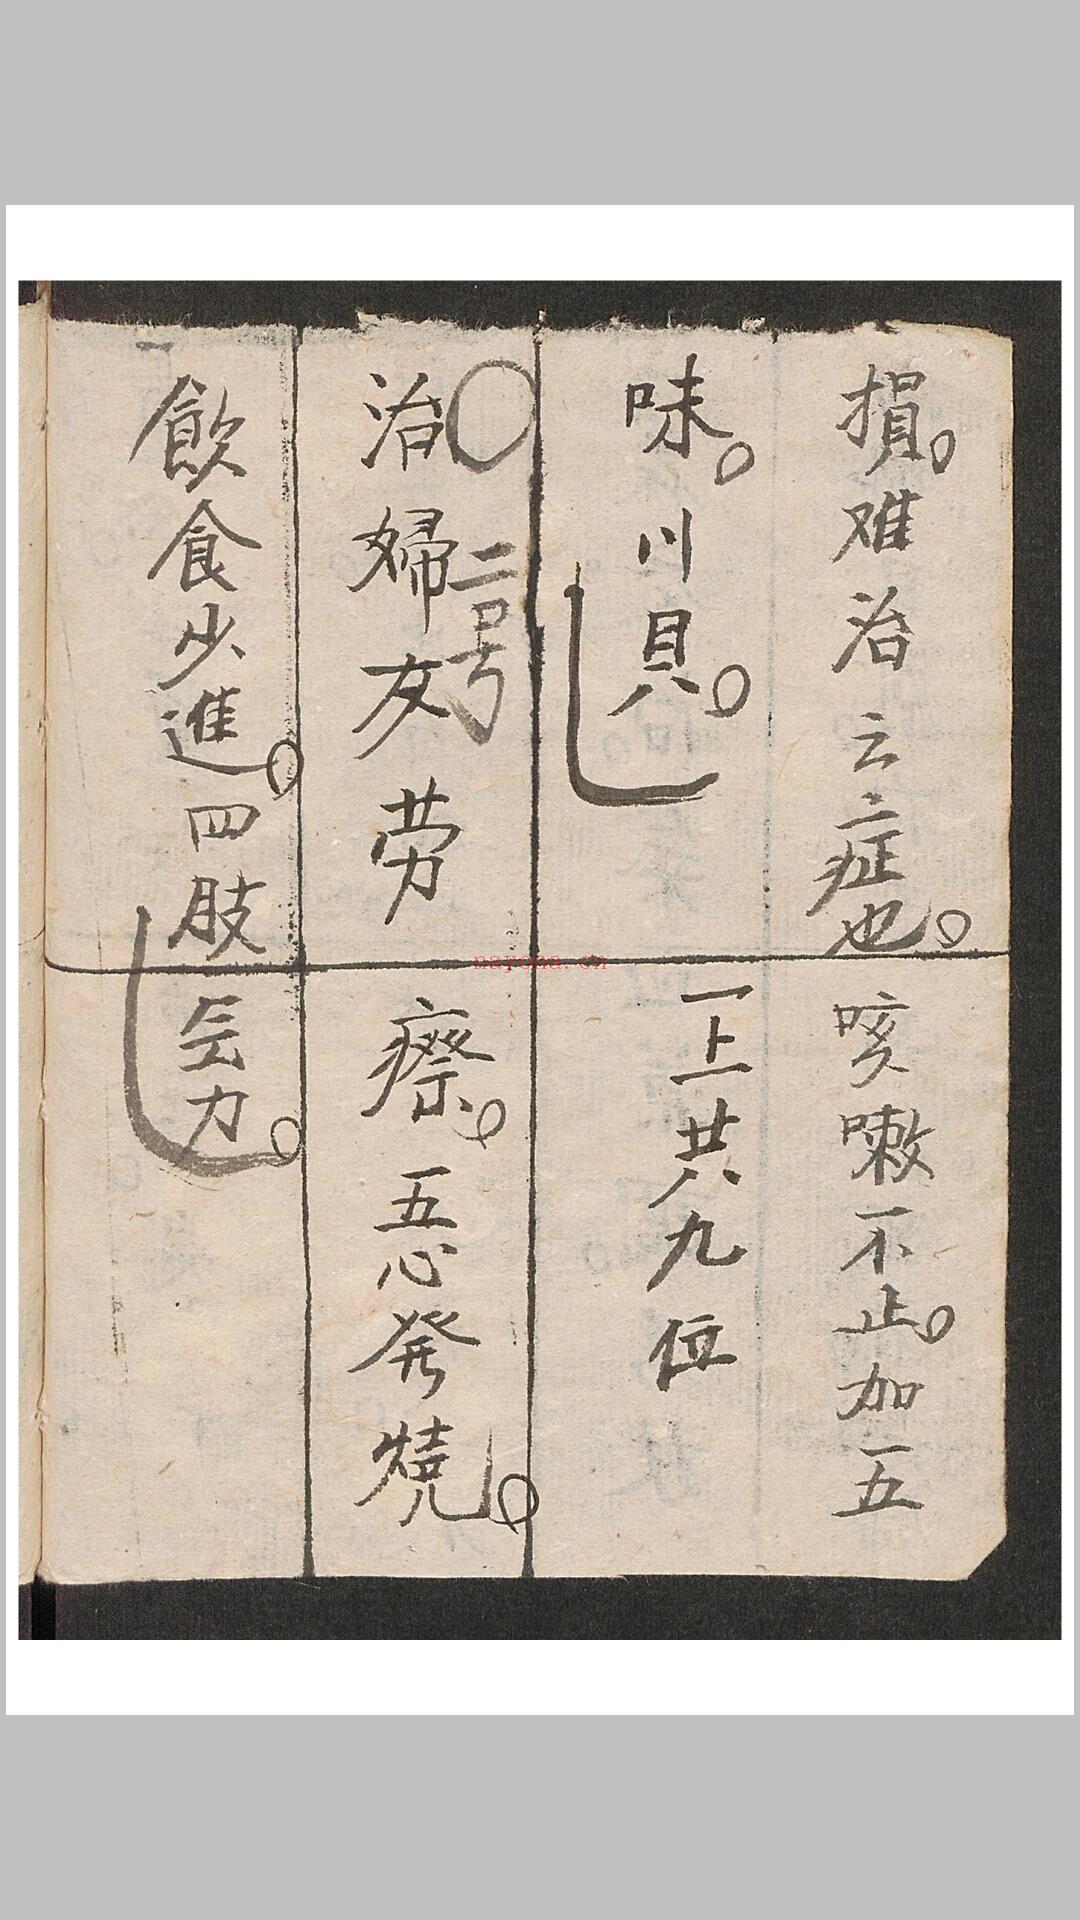 損。难治云症也。咳嗽不止。加五
味。川貝。一上共九位
〇二号
治婦女劳瘵。五心発燒。
飲食少進。四肢力。
nayona.cn